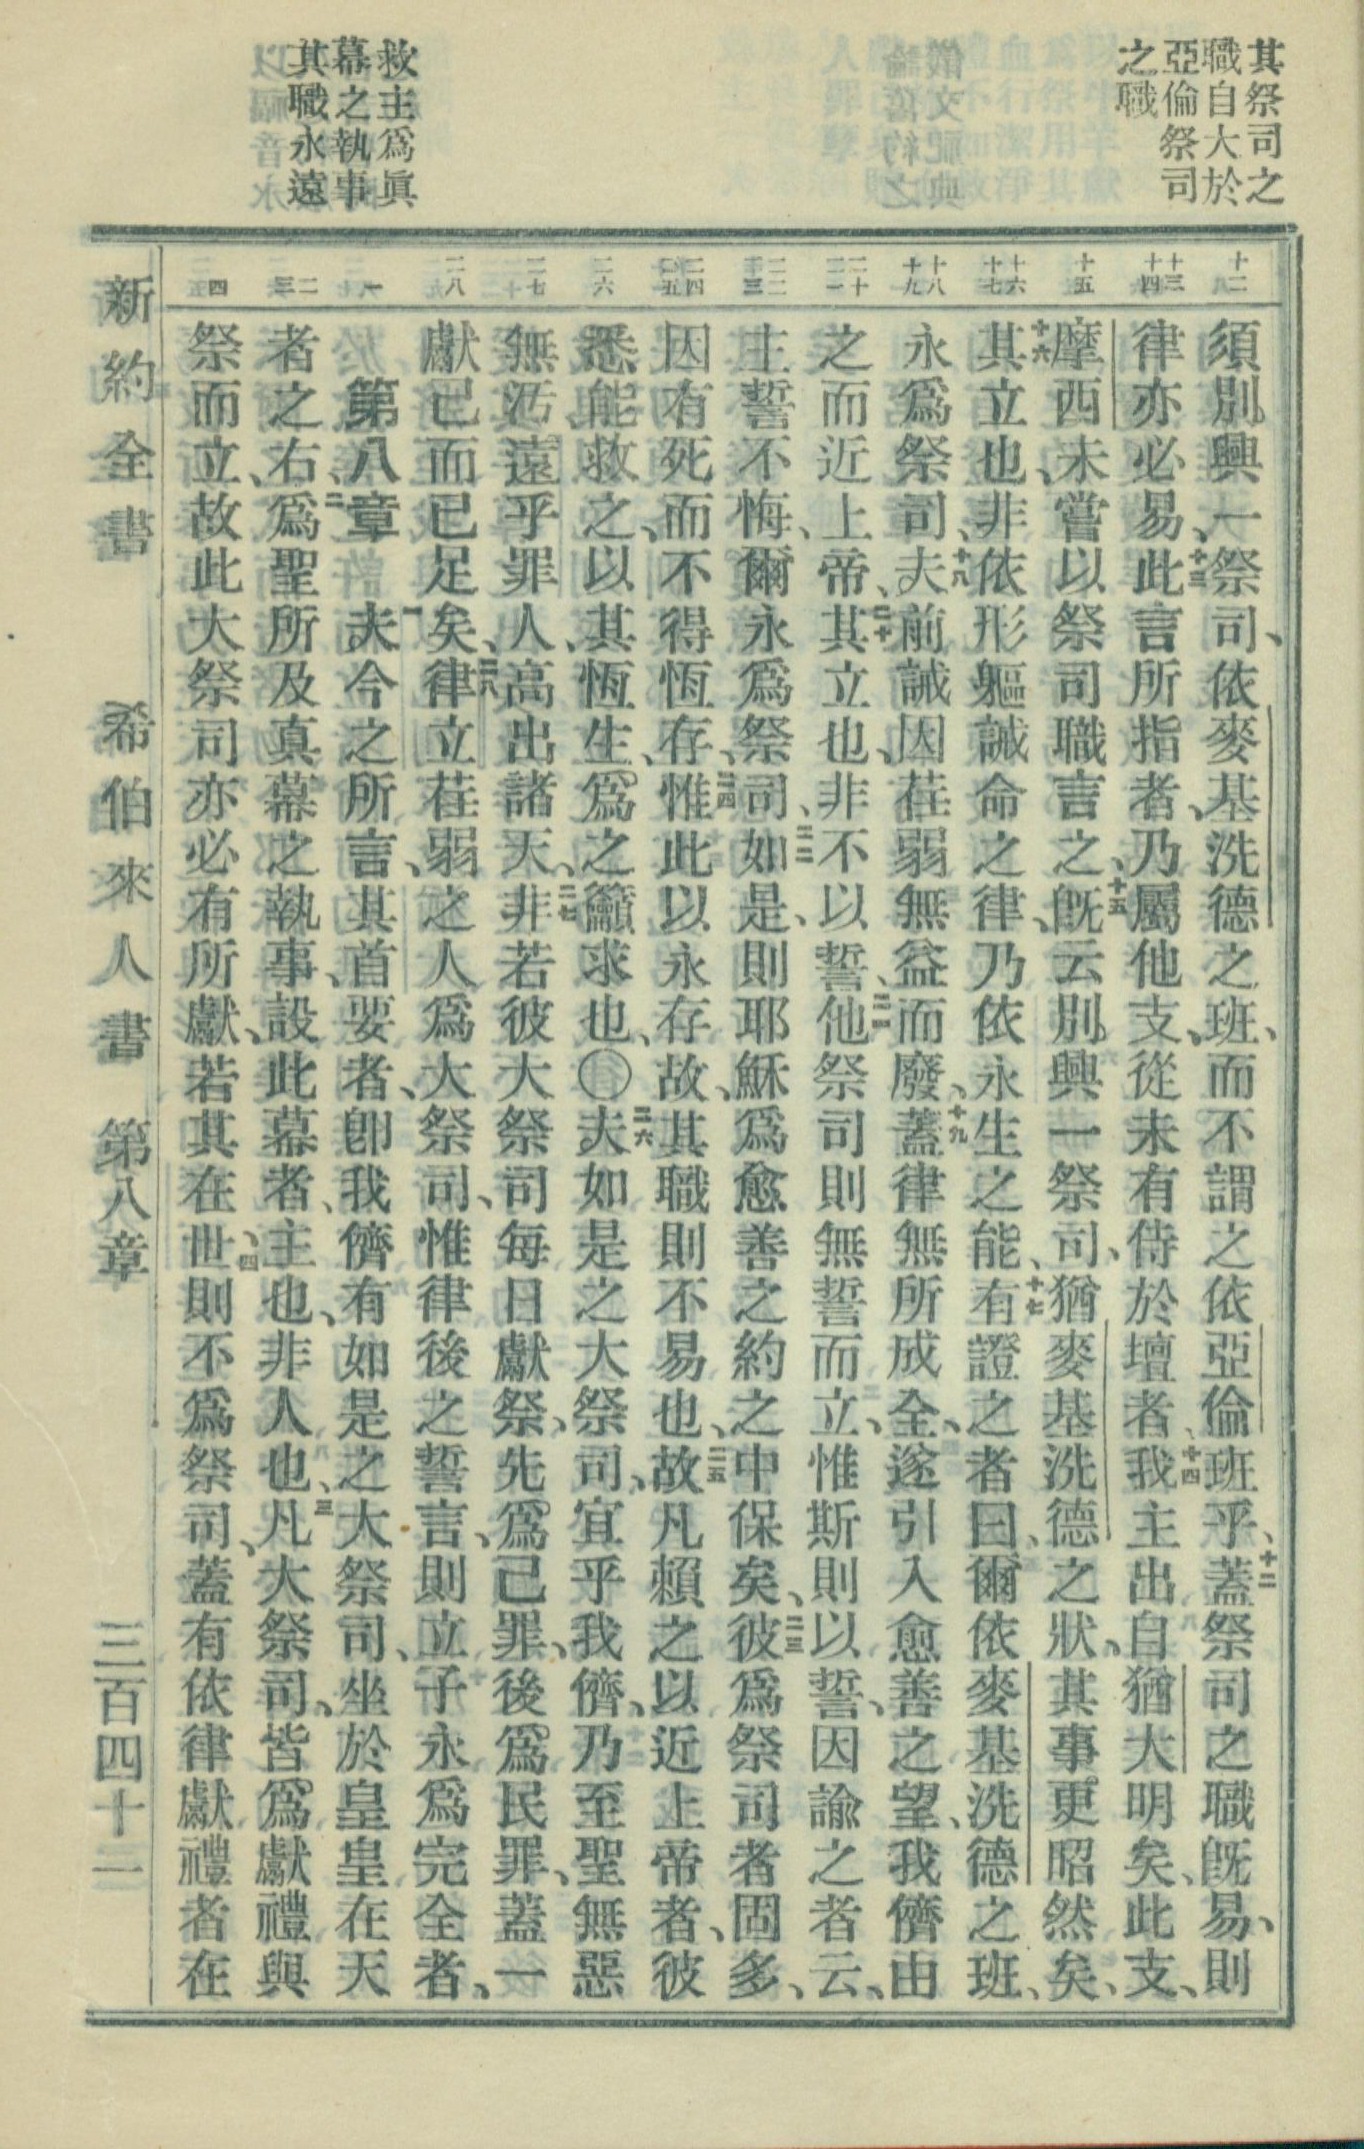 其祭司之
職自大於
亞倫祭司
之職
救主爲眞
幕之執事
其職永遠
十二
十三 十四
十五
十六 十七
十八 十九
二十 二一
二二 二三
二四 二五
二六
二七
二八
一
二 三
四
須別興一祭司、依麥基洗德之班、而不謂之依亞倫班乎、十二蓋祭司之職旣易、則
律亦必易、十三此言所指者、乃屬他支、從未有侍於壇者、十四我主出自猶大明矣、此支、
摩西未嘗以祭司職言之、十五旣云別興一祭司、猶麥基洗德之狀、其事更昭然矣、
十六其立也、非依形軀誡命之律、乃依永生之能、十七有證之者曰、爾依麥基洗德之班、
永爲祭司、十八夫前誡因荏弱無益而廢、十九蓋律無所成全、遂引入愈善之望、我儕由
之而近上帝、二十其立也、非不以誓、二一他祭司則無誓而立、惟斯則以誓、因諭之者云、
主誓不悔、爾永爲祭司、二二如是、則耶穌爲愈善之約之中保矣、二三彼爲祭司者固多、
因有死而不得恆存、二四惟此以永存故、其職則不易也、二五故凡賴之以近上帝者、彼
悉能救之、以其恆生、爲之籲求也、〇二六夫如是之大祭司、宜乎我儕、乃至聖無惡
無汚、遠乎罪人、高出諸天、二七非若彼大祭司每日獻祭、先爲己罪、後爲民罪、蓋一
獻己而已足矣、二八律立荏弱之人爲大祭司、惟律後之誓言、則立子永爲完全者、
第八章 一夫今之所言、其首要者、卽我儕有如是之大祭司、坐於皇皇在天
者之右、二爲聖所及真幕之執事、設此幕者、主也、非人也、三凡大祭司、皆爲獻禮與
祭而立、故此大祭司亦必有所獻、四若其在世、則不爲祭司、蓋有依律獻禮者在
新約全書 希伯來人書 第八章 三百四十二